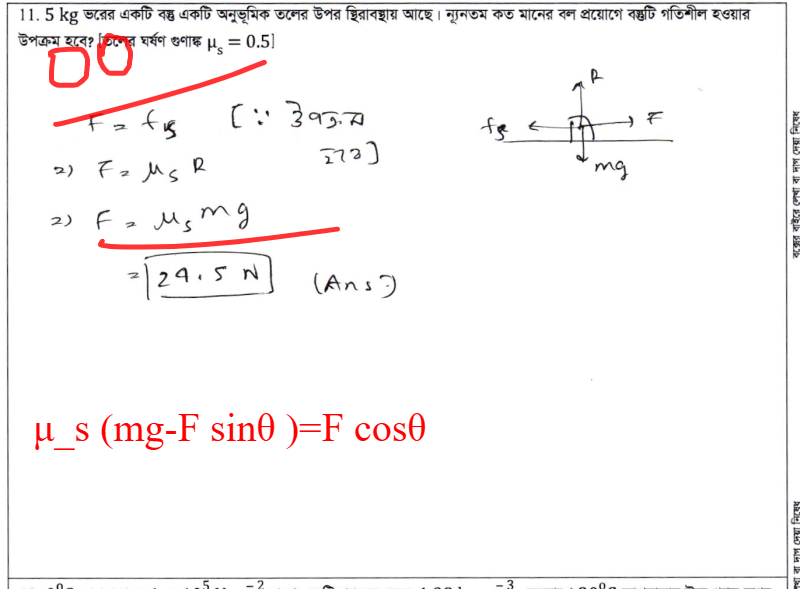 11. 5 kg ভরের একটি বস্তু একটি অনুভূমিক তলের উপর স্থিরাবস্থায় আছে। ন্যূনতম কত মানের বল প্রয়োগে বস্তুটি গতিশীল হওয়ার
উপক্রম হবে? [তলের ঘর্ষণ গুণাঙ্ক μₛ = 0.5]
F = fₛ [∵ উপক্রম
হবে]
⇒) F = μₛ R
⇒) F = μₛ mg
= 24.5 N (Ans:)
R
fₛ F
mg
μ_s (mg-F sinθ )=F cosθ
বক্সের বাইরে লেখা বা দাগ দেয়া নিষেধ
লেখা বা দাগ দেয়া নিষেধ